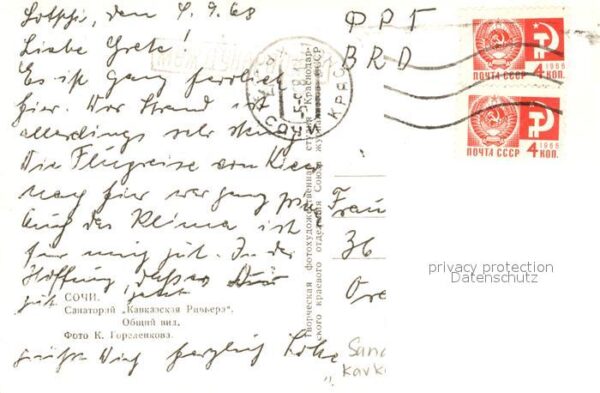 Sotschi, den 4.9.68
Liebe Grete!
Es ist ganz herrlich
hier. Der Strand ist
allerdings sehr steinig
Die Flugreise von Kiew
nach hier war ganz
Auch das Klima ist
für mich gut. In der
Hoffnung, dass es Dir
gut geht
grüßt Dich herzlich
СОЧИ.
Санаторий „Кавказская Ривьера“.
Общий вид.
Фото К. Гореленкова.
Творческая фотохудожественная студия Краснодар-
ского краевого отделения Союза журналистов СССР
ФРГ
BRD
Frau
36
ПОЧТА СССР
1966
4 КОП.
ПОЧТА СССР
1966
4 КОП.
privacy protection
Datenschutz